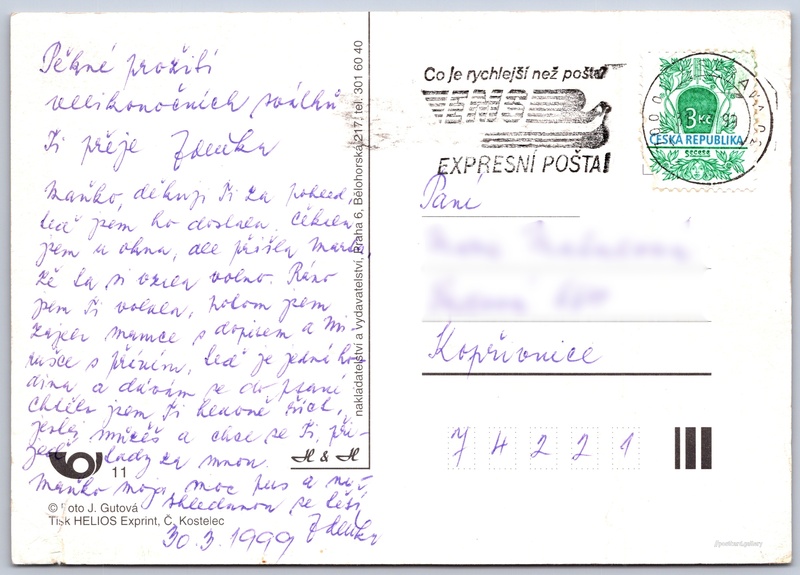 Pěkné prožití
velikonočních svátků
Ti přeje Zdenka
Maňko, děkuji Ti za pohled,
teď jsem ho dostala. Čekala
jsem u okna, ale přišla
že ta si vzala volno. Ráno
jsem Ti volala, potom jsem
mamce s dopisem a
s přáním, teď je jedna ho-
dina a dávám se do psaní
chtěla jsem Ti hlavně říct,
jestli můžeš a chce se Ti, při-
jeď tady za mnou.
Maňko moje moc pus a na
shledanou se těší
Zdenka
30.3.1999
11
H & H
© Foto J. Gutová
Tisk HELIOS Exprint, Č. Kostelec
nakladatelství a vydavatelství, Praha 6, Bělohorská 217, tel. 301 60 40
Co je rychlejší než pošta?
EMS
EXPRESNÍ POŠTA!
3 Kč
ČESKÁ REPUBLIKA
SECESE
Paní
Kopřivnice
74221